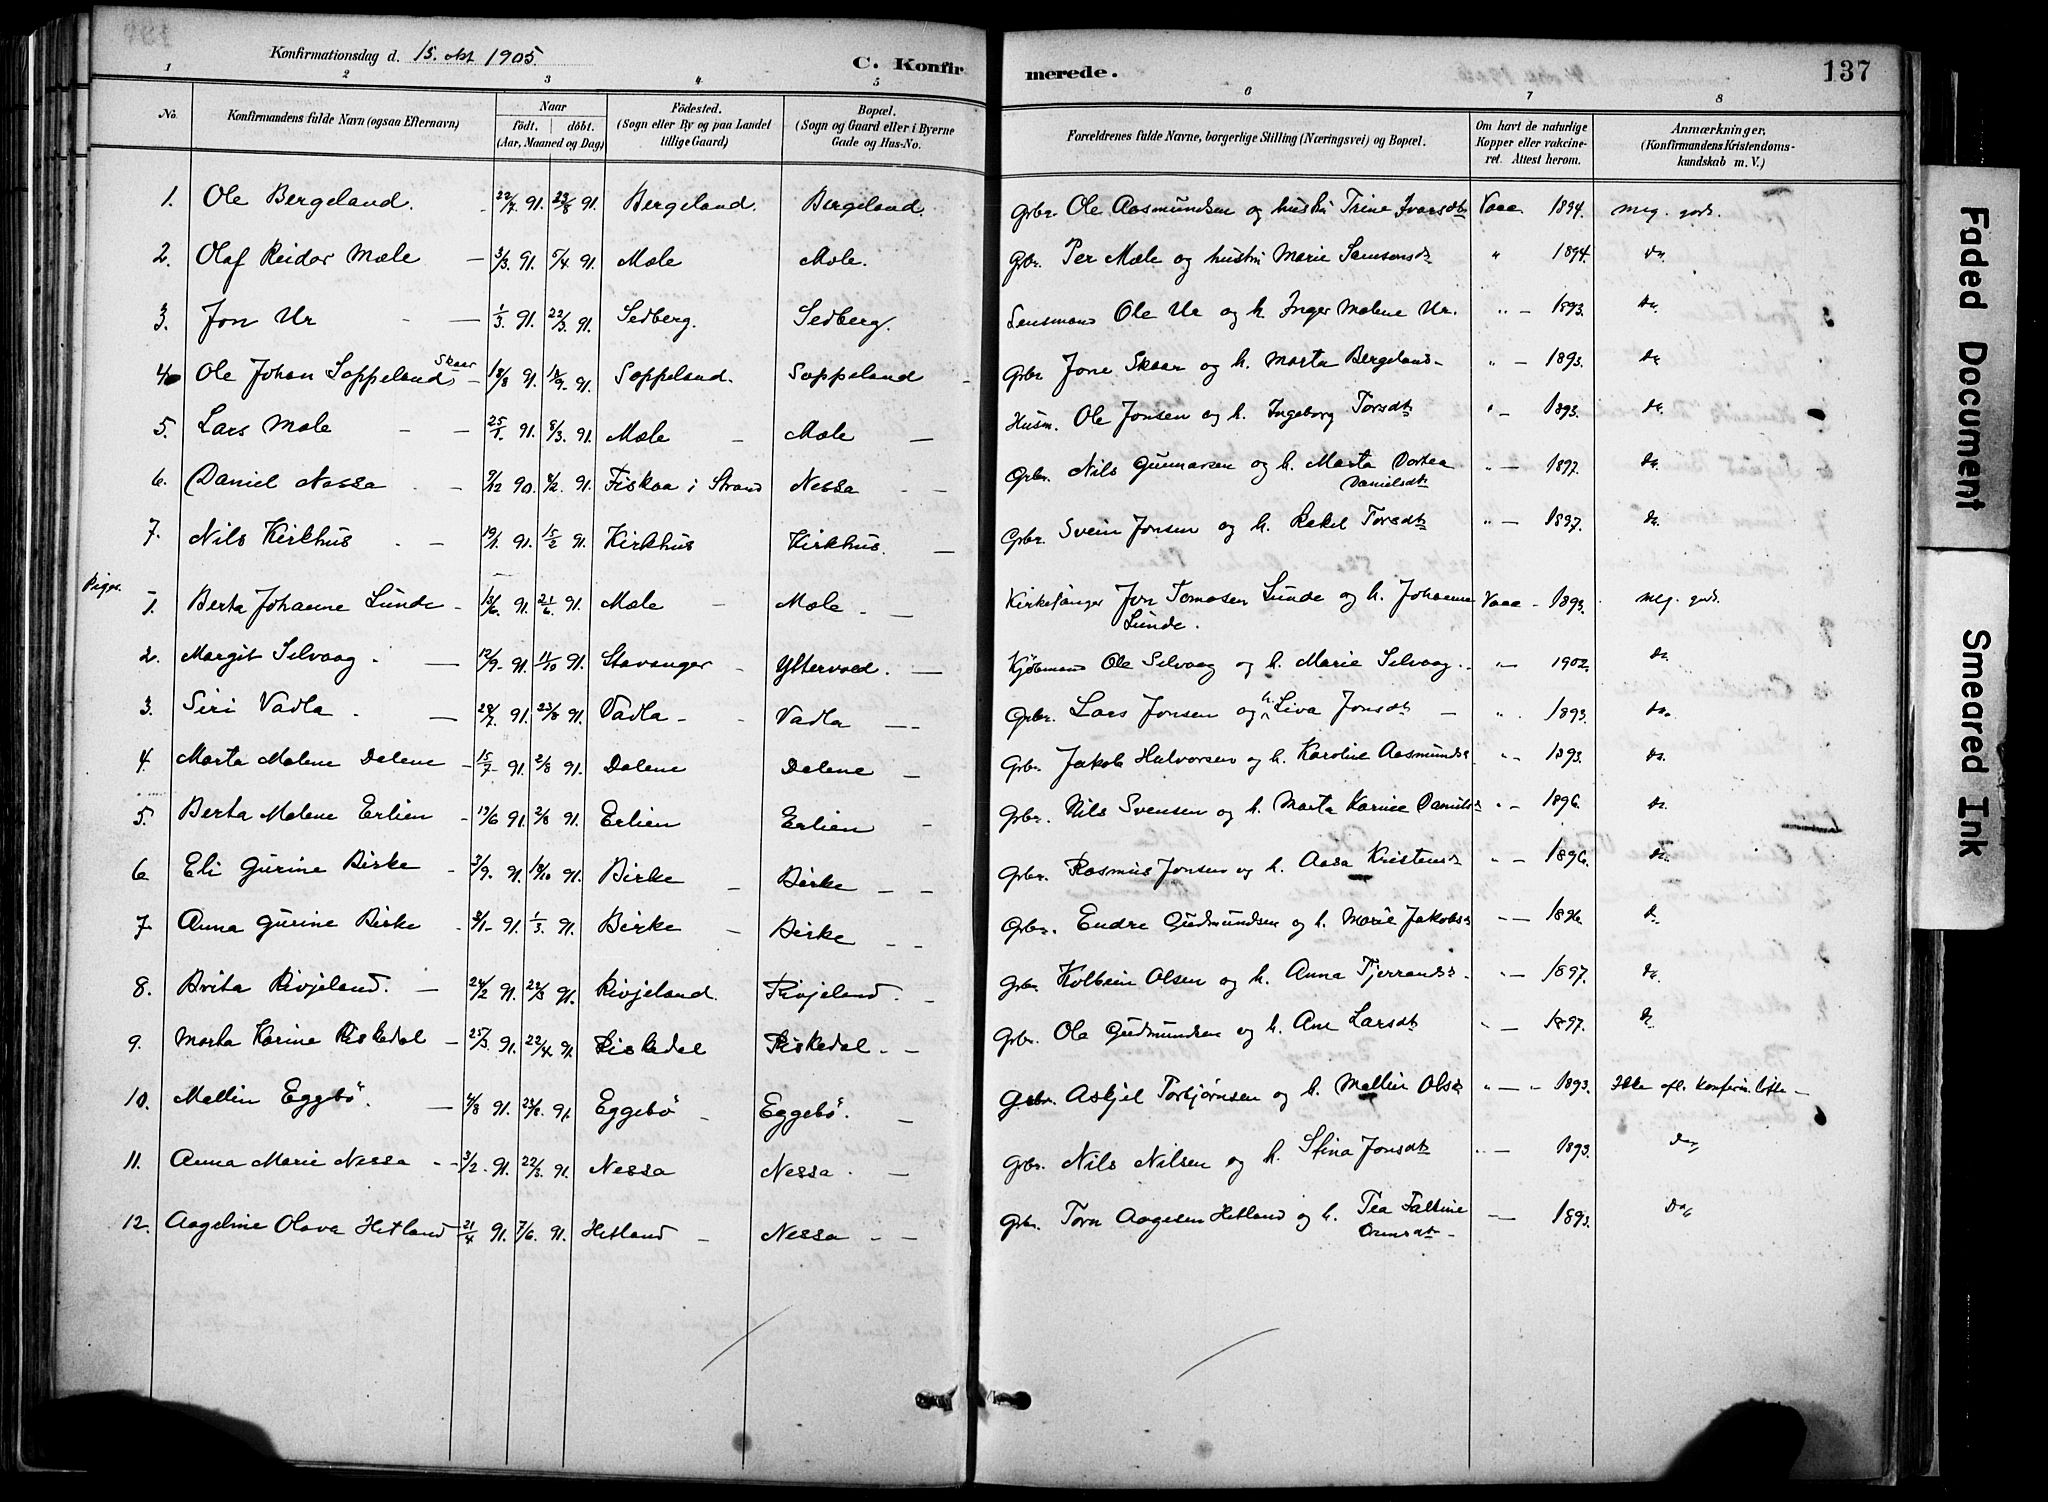 Konfirmationsdag d. 15. okt 1905.
C. Konfirmerede.
137
1 2 3 4 5 6 7 8
No. | Konfirmandens fulde Navn (ogsaa Efternavn) | Naar født. | døbt. (Aar, Maaned og Dag) | Födested. (Sogn eller By og paa Landet tillige Gaard) | Bopæl. (Sogn og Gaard eller i Byerne Gade og Hus-No. | Forældrenes fulde Navne, borgerlige Stilling (Næringsvei) og Bopæl. | Om havt de naturlige Kopper eller vakcineret. Attest herom. | Anmærkninger. (Konfirmandens Kristendomskundskab m. V.)
1. Ole Bergeland. 22/7 91. 23/8 91. Bergeland. Bergeland. Grbr. Ole Aasmundsen og hustru Trine Ivarsdtr Vacc. 1894. meg. godt.
2. Olaf Reidar Mæle – 3/3 91. 5/4 91. Mæle Mæle. Grbr. Per Mæle og hustru Marie Samsonsdr " 1894. Do.
3. Jon Ur – 1/3 91. 22/3 91. Sedberg. Sedberg. Lensmand Ole Ur og h. Inger Malene Ur. " – 1893. Do.
4. Ole Johan Soppeland Skaar – 18/8 91. 13/9 91. Soppeland. Soppeland – Grbr Jone Skaar og h. Marta Bergeland – " – 1893. Do
5. Lars Mæle – – 25/1 91. 8/3 91. Mæle – Mæle – Husm. Ole Jonsen og h. Ingeborg Torsdtr " – 1893. Do.
6. Daniel Nessa – 9/12 90. 8/2 91. Fiskaa i Strand Nessa – Grbr. Nils Gunnarsen og h. Marta Dortea Danielsdtr " – 1897. Do
7. Nils Kirkhus – 19/1 91. 15/2 91. Kirkhus Kirkhus. – Grbr. Svein Jonsen og h. Rakel Torsdtr " – 1897. Do.
Piger.
1. Berta Johanne Lunde – 13/6 91. 21/6 91. Mæle – Mæle – Kirkesanger Jon Tomasen Lunde og h. Johanne Lunde. Vacc – 1893. meg. godt.
2. Margit Selvaag – 12/9 91. 11/10 91. Stavanger – Yttervoed. – Kjøbmand Ole Selvaag og h. Marie Selvaag. " – 1902. Do.
3. Siri Vadla – 28/7 91. 23/8 91. Vadla – Vadla – Grbr. Lars Jonsen og h. Siva Jonsdtr – " 1893. Do.
4. Marta Malene Dalene – 15/7 91. 2/8 91. Dalene Dalene – Grbr. Jakob Halvorsen og h. Karoline Aasmundsd " – 1893. Do.
5. Berta Malene Erlien – 13/6 91. 2/8 91. Erlien Erlien – Grbr. Nils Svensen og h. Marta Karine Danielsd " – 1896. Do.
6. Eli Gurine Birke – 3/9. 91. 18/10 91. Birke – Birke – – Grbr. Rasmus Jonsen og h. Aasa Kristensd " – 1896. Do.
7. Anna Gurine Birke – 3/1 91. 1/3 91. Birke – Birke – – Grbr. Endre Gudmundsen og h. Marie Jakobsd " – 1896. Do
8. Brita Rivjeland. – 24/2 91. 22/3 91. Rivjeland. Rivjeland. – Grbr. Kolbein Olsen og h. Anna Tjerrandsd. " – 1897. Do.
9. Marta Karine Riskedal – 25/3 91. 22/4 91. Riskedal Riskedal – – Grbr. Ole Gudmundsen og h. Ane Larsdtr " – 1897. Do
10. Mallin Eggebö. – 4/8 91. 23/8. 91. Eggebö – Eggebö. – Grbr. Askjel Torbjørnsen og h. Mallin Olsd " – " 1893. Ikke afl. konfirm.løfte –
11. Anna Marie Nessa – – 3/2. 91. 22/3. 91. Nessa Nessa. – Grbr. Nils Nilsen og h. Stina Jonsdtr " – 1893. Do,
12. Aageline Olava Hetland 21/4 91. 7/6. 91. Hetland – Nessa – – Grbr. Torn Aagesen Hetland og h. Tea Talline Ormsdtr – – 1893. Do,
Faded Document
Smeared Ink